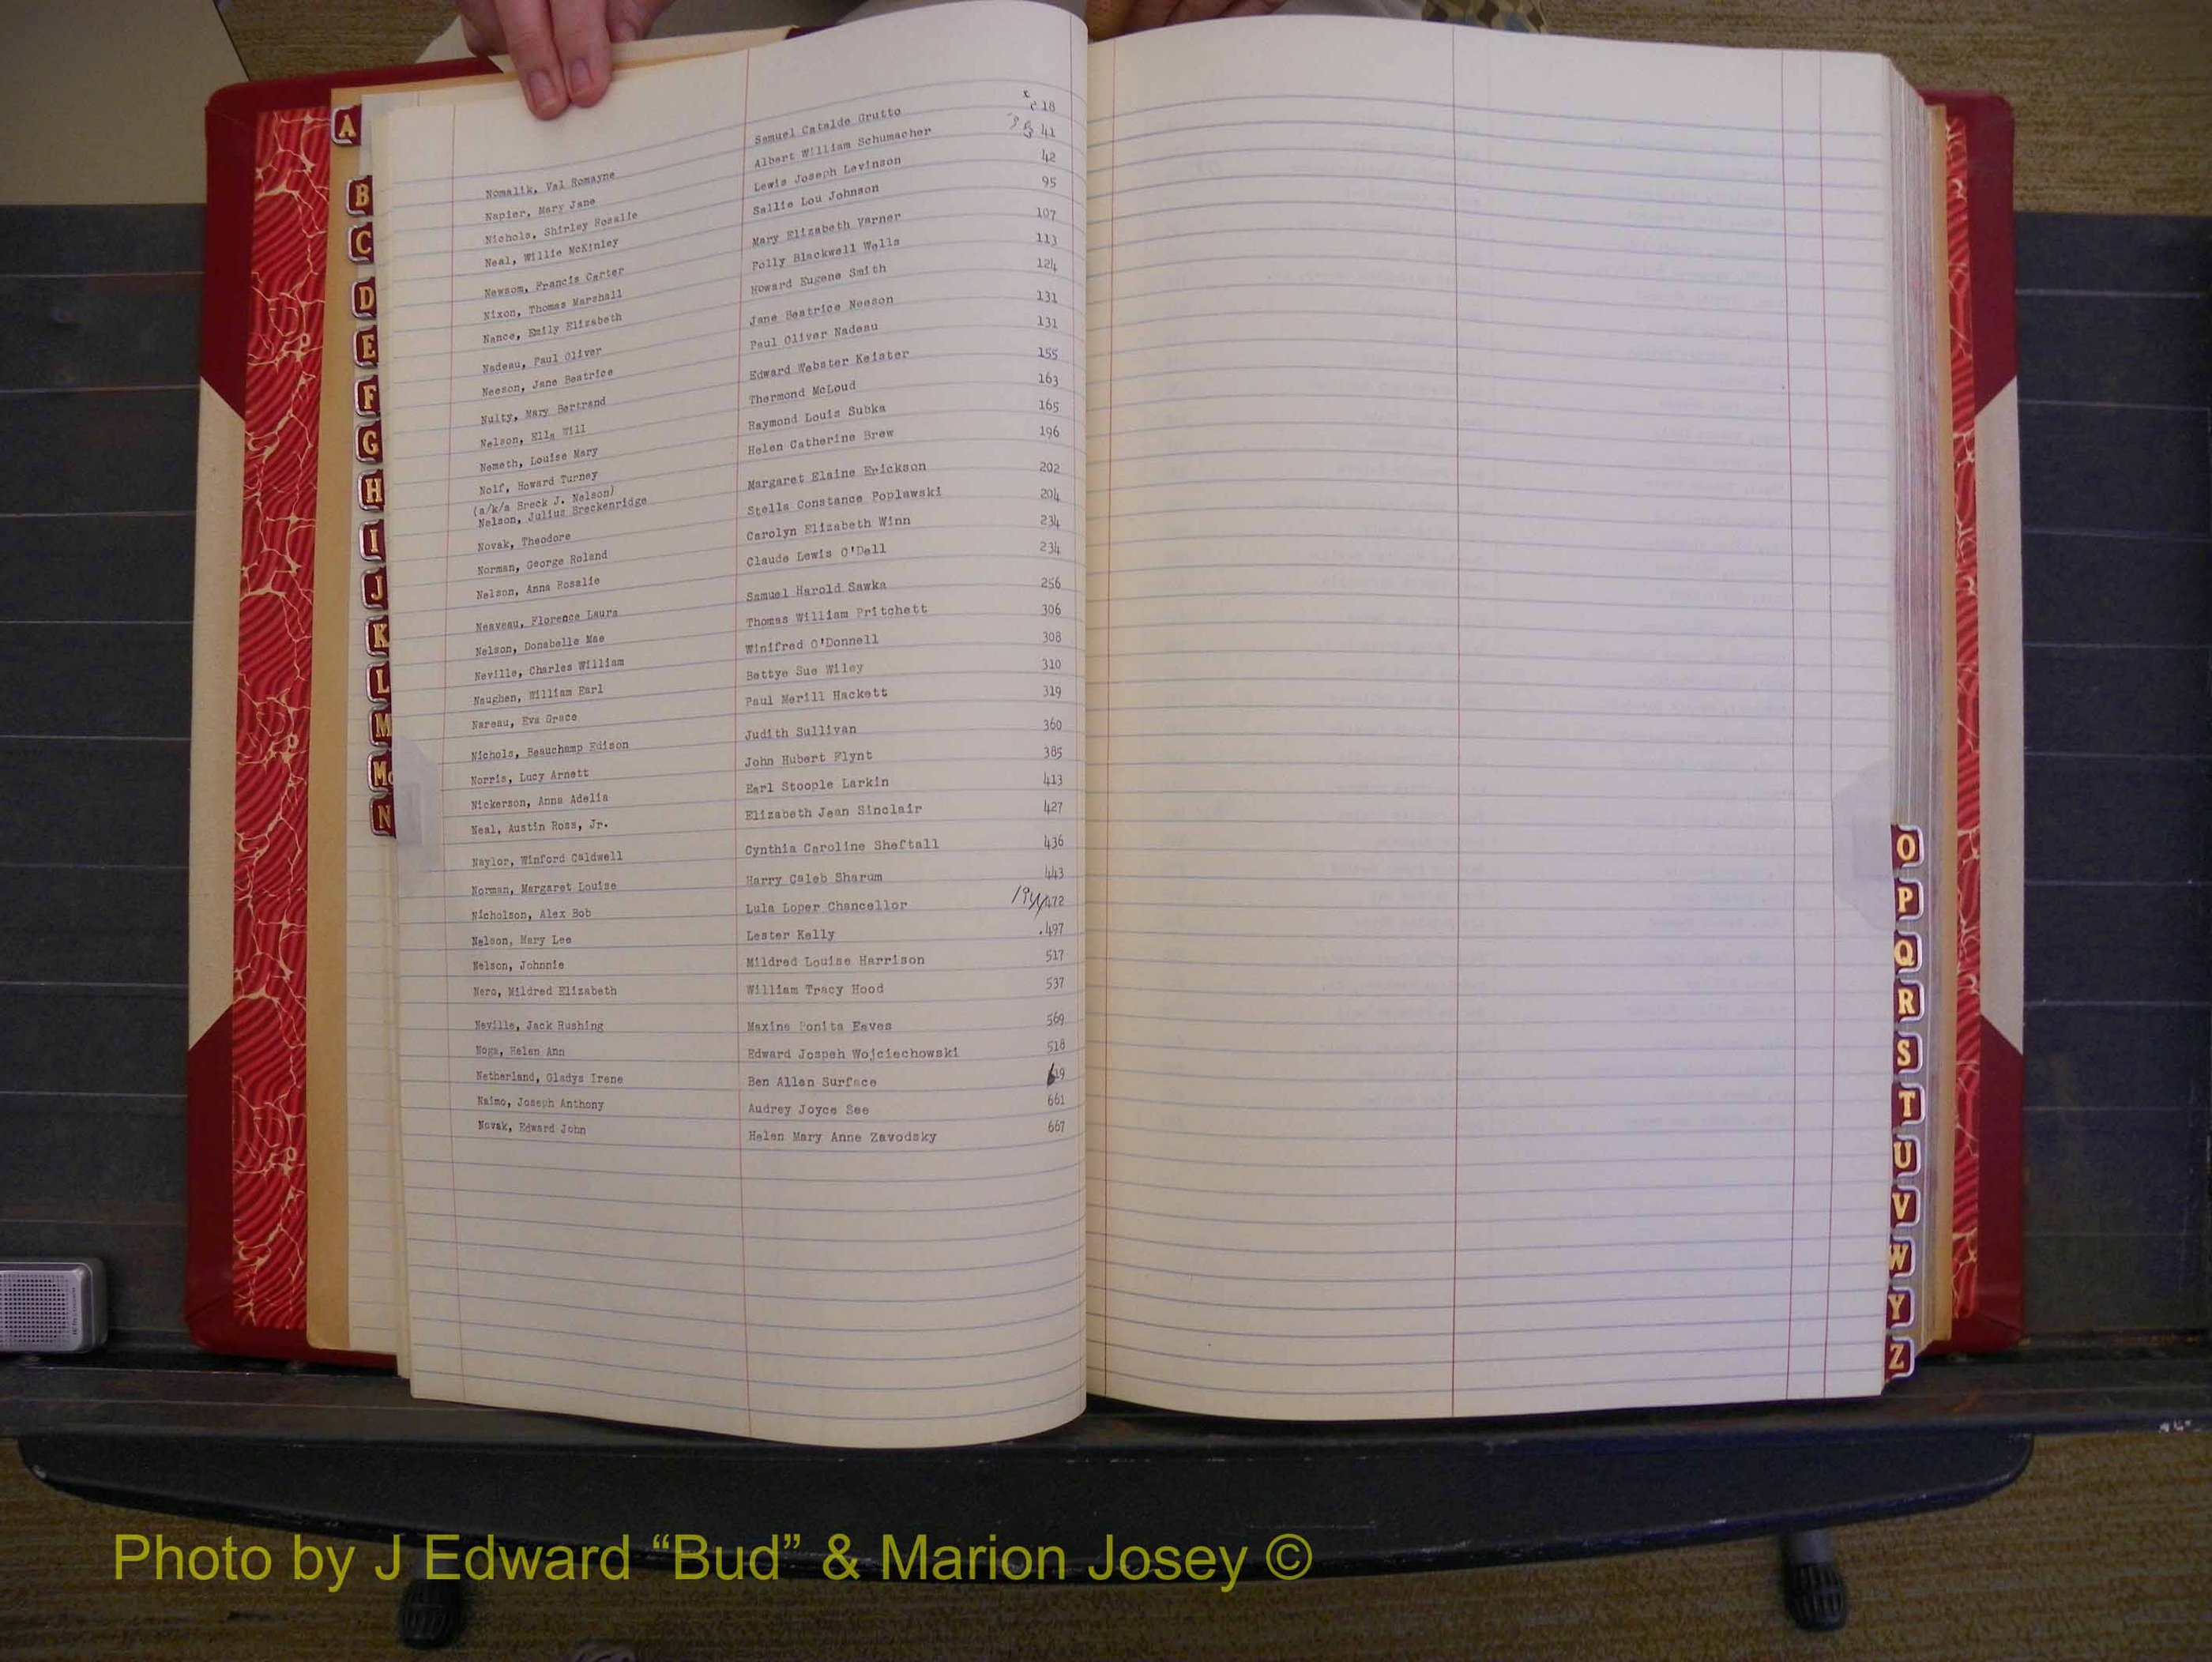 Nomalik, Val Romayne Samuel Catalde Grutto 18
Napier, Mary Jane Albert William Schumacher 41
Nichols, Shirley Rosalie Lewis Joseph Levinson 42
Neal, Willie McKinley Sallie Lou Johnson 95
Newsom, Francis Carter Mary Elizabeth Varner 107
Nixon, Thomas Marshall Polly Blackwell Wells 113
Nance, Emily Elizabeth Howard Eugene Smith 124
Nadeau, Paul Oliver Jane Beatrice Neeson 131
Neeson, Jane Beatrice Paul Oliver Nadeau 131
Nulty, Mary Bertrand Edward Webster Keister 155
Nelson, Ella Will Thermond McLoud 163
Nemeth, Louise Mary Raymond Louis Subka 165
Nolf, Howard Turney Helen Catherine Brew 196
(a/k/a Breck J. Nelson)
Nelson, Julius Breckenridge Margaret Elaine Erickson 202
Novak, Theodore Stella Constance Poplawski 204
Norman, George Roland Carolyn Elizabeth Winn 234
Nelson, Anna Rosalie Claude Lewis O'Dell 234
Neaveau, Florence Laura Samuel Harold Sawka 256
Nelson, Donabelle Mae Thomas William Pritchett 306
Neville, Charles William Winifred O'Donnell 308
Naughen, William Earl Bettye Sue Wiley 310
Nareau, Eva Grace Paul Merill Hackett 319
Nichols, Beauchamp Edison Judith Sullivan 360
Norris, Lucy Arnett John Hubert Flynt 385
Nickerson, Anna Adelia Earl Stoople Larkin 413
Neal, Austin Ross, Jr. Elizabeth Jean Sinclair 427
Naylor, Winford Caldwell Cynthia Caroline Sheftall 436
Norman, Margaret Louise Harry Caleb Sharum 443
Nicholson, Alex Bob Lula Loper Chancellor 472
Nelson, Mary Lee Lester Kelly 497
Nelson, Johnnie Mildred Louise Harrison 517
Nero, Mildred Elizabeth William Tracy Hood 537
Neville, Jack Rushing Maxine Bonita Eaves 569
Noga, Helen Ann Edward Jospeh Wojciechowski 518
Netherland, Gladys Irene Ben Allen Surface
Naimo, Joseph Anthony Audrey Joyce See 661
Novak, Edward John Helen Mary Anne Zavodsky 667
A
B
C
D
E
F
G
H
I
J
K
L
M
Mc
N
O
P
Q
R
S
T
U
V
W
Y
Z
Photo by J Edward “Bud” & Marion Josey ©